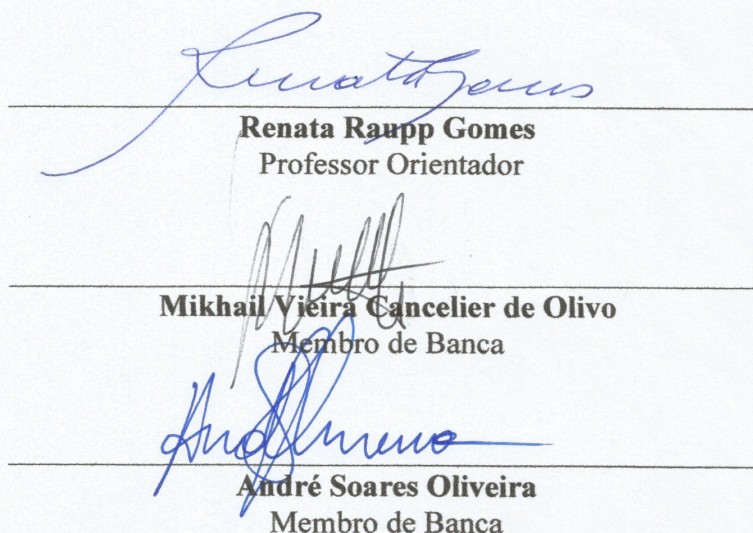 Renata Gomes
Renata Raupp Gomes
Professor Orientador
Mikhail Vieira Cancelier de Olivo
Membro de Banca
André Soares Oliveira
Membro de Banca